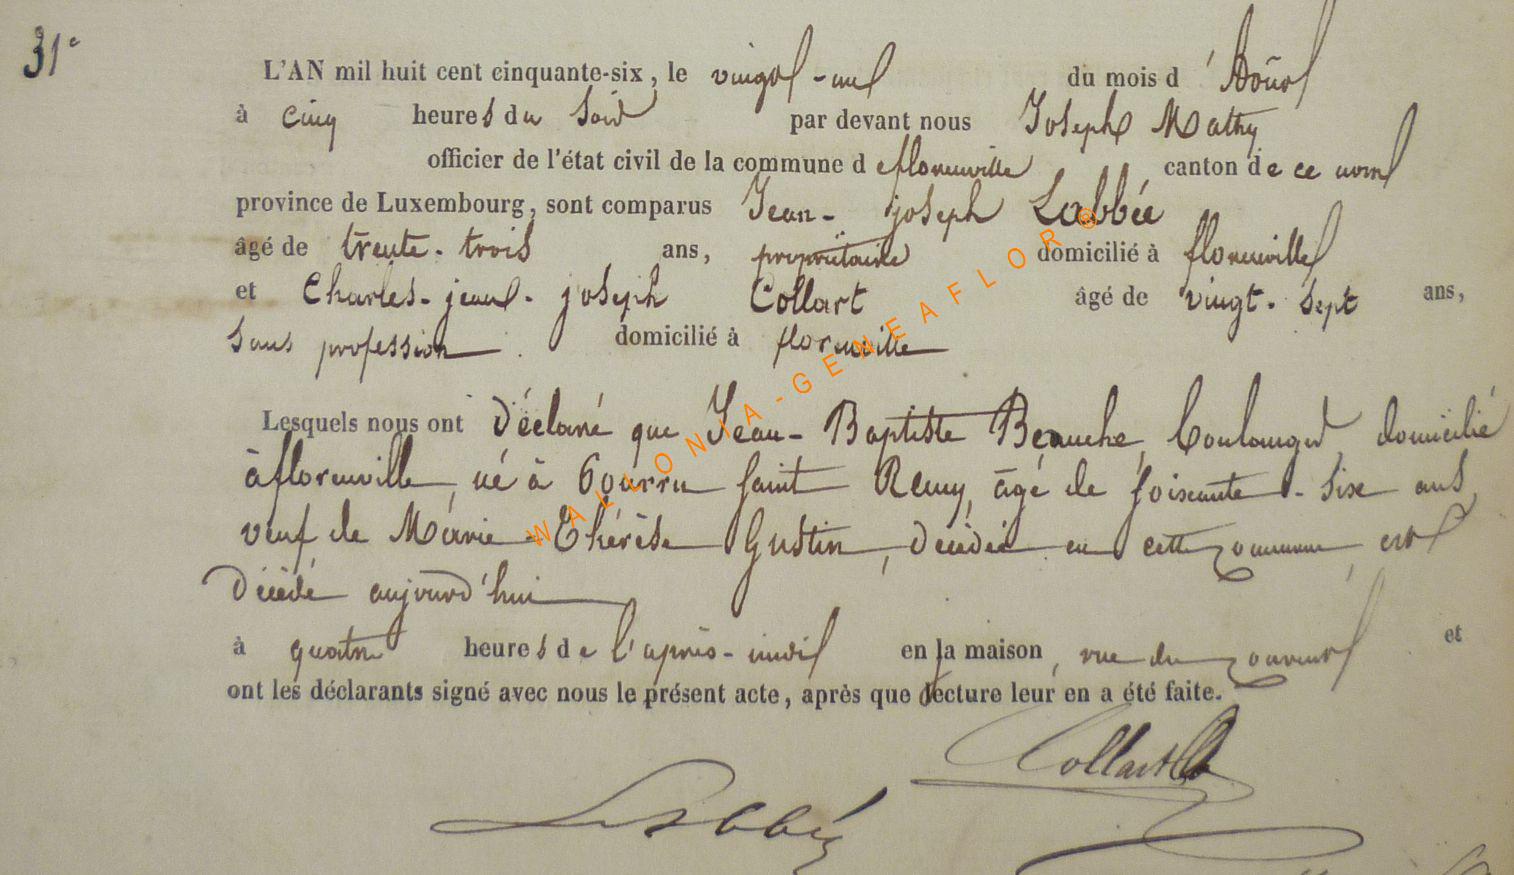 31e
L'AN mil huit cent cinquante-six, le vingt-un du mois d'Août
à cinq heures du Soir par devant nous Joseph Mathy
officier de l'état civil de la commune de florenville canton de ce nom
province de Luxembourg, sont comparus Jean-joseph Labbée
âgé de trente-trois ans, propriétaire domicilié à florenville
et Charles-jean-joseph Collart âgé de vingt-sept ans,
Sans profession domicilié à florenville
Lesquels nous ont Déclaré que Jean-Baptiste Beauché, boulanger, domicilié
à florenville, né à Sain Remy, âgé de soixante-six ans,
veuf de Marie-Thérèse Gustin, décédée en cette commune, est
Décédé aujourd'hui
à quatre heures de l'après-midi en sa maison, rue du et
ont les déclarants signé avec nous le présent acte, après que lecture leur en a été faite.
Collart
Labbée
WALLONIA-GENEAFLOR®